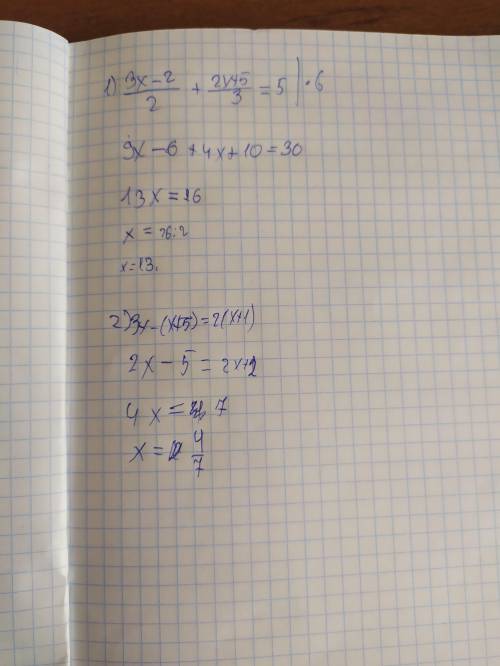 1) (3x-2)/2 + (2x+5)/3 = 5 | · 6
9x - 6 + 4x + 10 = 30
13x = 26
x = 26:2
x = 13.
2) 3x - (x+5) = 2(x+1)
2x - 5 = 2x+2
4x = 7
x = 4/7